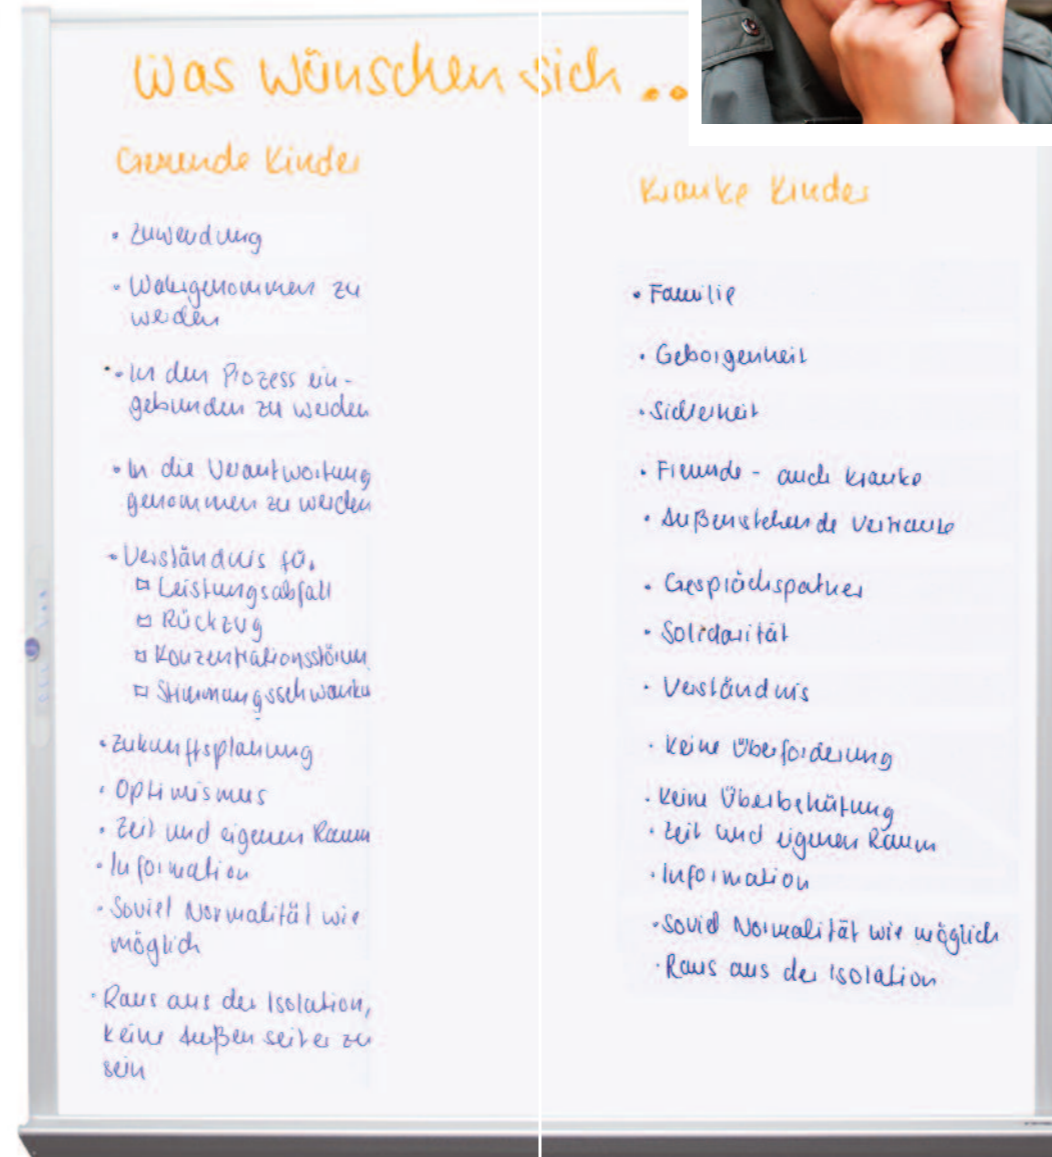 Was wünschen sich ...
Gesunde Kinder
• Zuwendung
• Wahrgenommen zu
werden
• In den Prozess ein-
gebunden zu werden
• In die Verantwortung
genommen zu werden
• Verständnis für
Leistungsabfall
Rückzug
Konzentrationsstörun
Stimmungsschwanku
• Zukunftsplanung
• Optimismus
• Zeit und eigenen Raum
• Information
• Soviel Normalität wie
möglich
• Raus aus der Isolation,
keine Außenseiter zu
sein
Kranke Kinder
• Familie
• Geborgenheit
• Sicherheit
• Freunde - auch kranke
• Außenstehende Vertraute
• Gesprächspatner
• Solidarität
• Verständnis
• Keine Überforderung
• Keine Überbehütung
• Zeit und eigenen Raum
• Information
• Soviel Normalität wie möglich
• Raus aus der Isolation